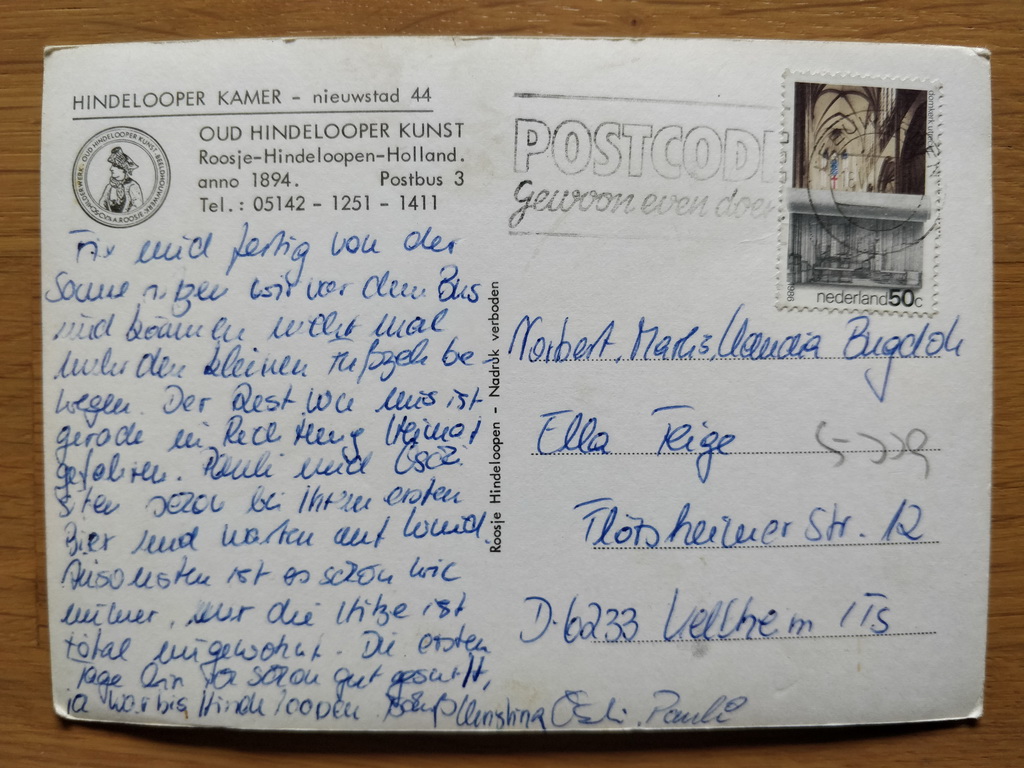 HINDELOOPER KAMER - nieuwstad 44
OUD HINDELOOPER KUNST
Roosje-Hindeloopen-Holland.
anno 1894. Postbus 3
Tel.: 05142 - 1251 - 1411
Fix und fertig von der
Sonne sitzen wir vor dem Bus
und können nicht mal
mehr den kleinen Fußzeh be-
wegen. Der Rest von uns ist
gerade in Richtung Heimat
gefahren. Pauli und
sitzen schon bei Ihrem ersten
Bier und warten auf Wind.
Ansonsten ist es schön wie
immer, nur die Hitze ist
total ungewohnt. Die ersten
Tage schon gut gesurft,
Hindeloopen. Christina Pauli
Roosje Hindeloopen - Nadruk verboden
POSTCODE
Gewoon even doen
domkerk
nederland 50c
1986
Norbert, Claudia Bugdoh
Ella Feige
Flörsheimer Str. 12
D-6233 Kelkheim / Ts